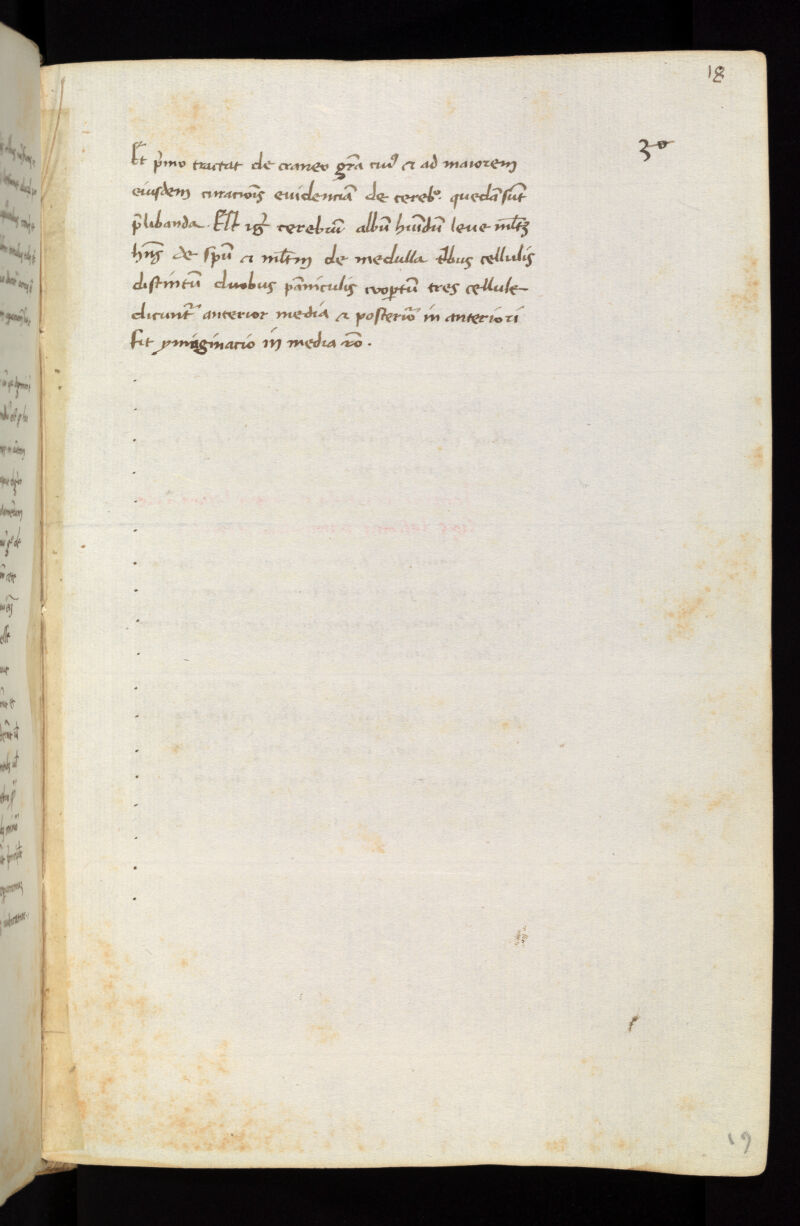 18
3º
Et p̄mo tractat de craneo gr̄a cui⁹ & ad maiorem
eiusdem curacōis euidenciā de cereb°. quedā sūt
p̄libanda. Est ig̃ cerebrū albū hūidū leue ml̄tꝫ
hn̄s de spū & ml̄tm de medulla tͥbus cellulis
distintū duobus pāniculis coop̄tū tres cellule
dicunt᷑ anterior media & posterio᷑ in anteriori
fit ymaginacio in media rō.
19